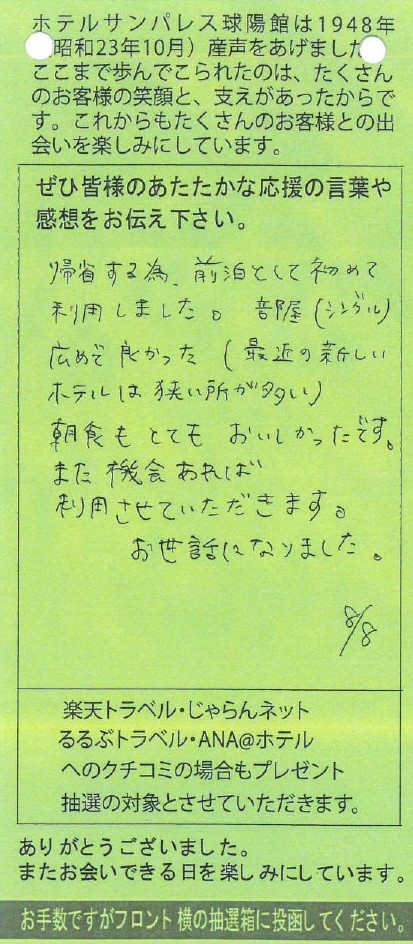 ホテルサンパレス球陽館は1948年
昭和23年10月）産声をあげました
ここまで歩んでこられたのは、たくさん
のお客様の笑顔と、支えがあったからで
す。これからもたくさんのお客様との出
会いを楽しみにしています。
ぜひ皆様のあたたかな応援の言葉や
感想をお伝え下さい。
帰省する為、前泊として初めて
利用しました。部屋（シングル）
広めで良かった（最近の新しい
ホテルは狭い所が多い）
朝食もとてもおいしかったです。
また機会あれば
利用させていただきます。
お世話になりました。
8/8
楽天トラベル・じゃらんネット
るるぶトラベル・ANA@ホテル
へのクチコミの場合もプレゼント
抽選の対象とさせていただきます。
ありがとうございました。
またお会いできる日を楽しみにしています。
お手数ですがフロント横の抽選箱に投函してください。